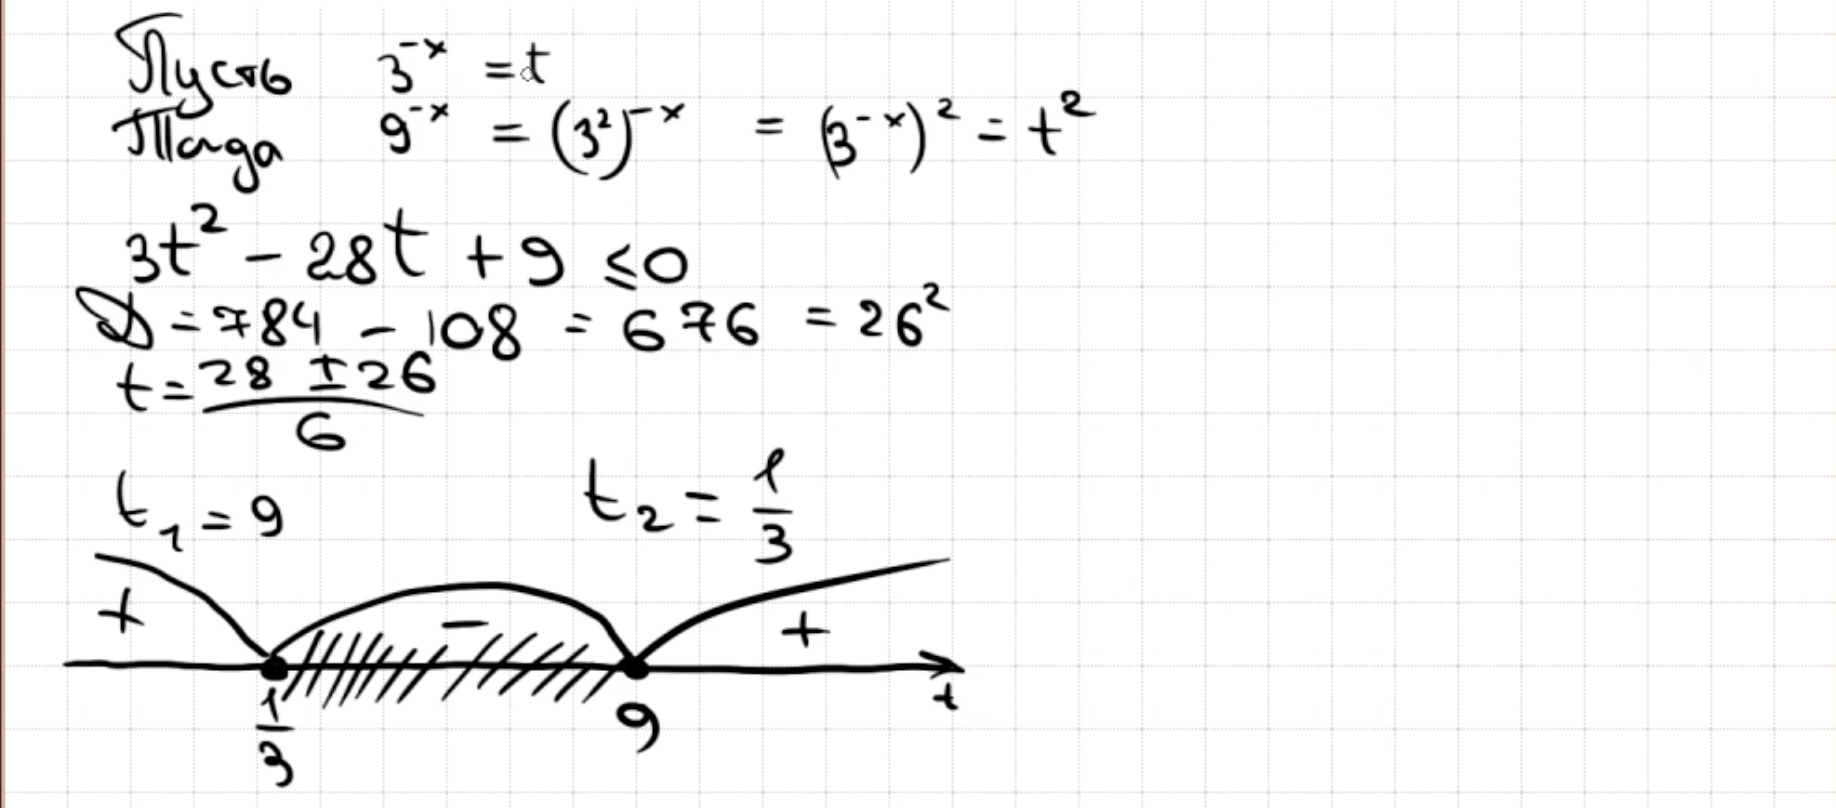 Пусть 3^{-x} = t
Тогда 9^{-x} = (3²)^{-x} = (3^{-x})² = t²
3t² - 28t + 9 ≤ 0
D = 784 - 108 = 676 = 26²
t = \frac{28 ± 26}{6}
t₁ = 9 t₂ = \frac{1}{3}
+ - +
\frac{1}{3} 9 t